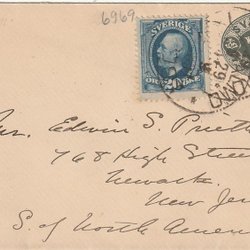 6969
SVERIGE
20 ÖRE 20
Mr. Edwin S. Pretty
768 High Street
Newark
New Jer
S. of North Amer